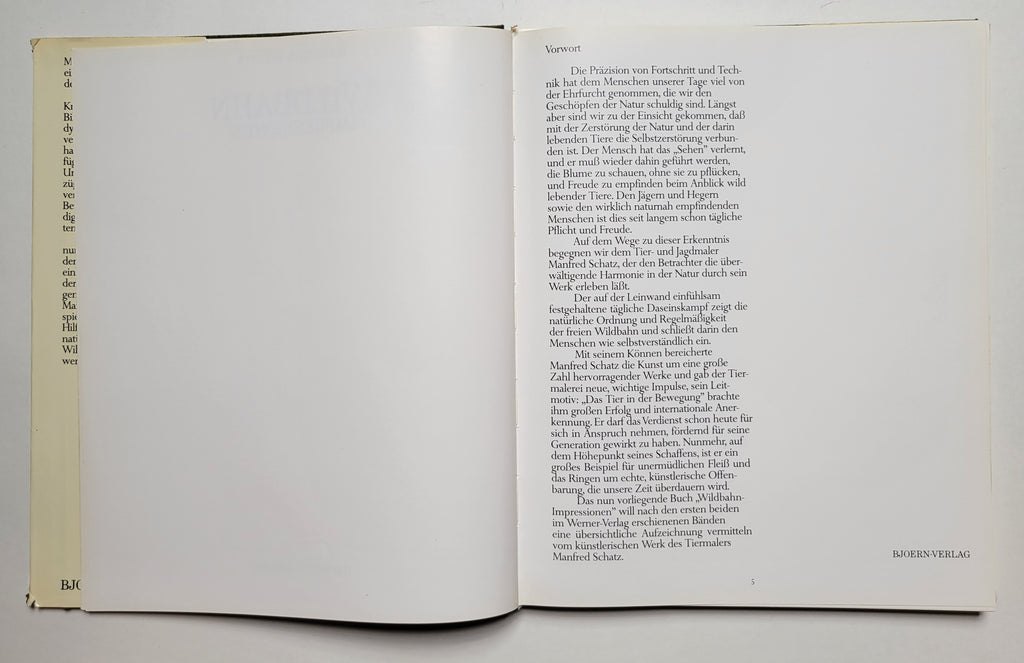 M
ei
de
Kr
Bi
dy
ve
ha
füg
Un
zü
ver
Be
dig
ten
nur
der
ein
der
ger
Ma
spie
Hilf
nati
Wil
wer
BJO
Vorwort
Die Präzision von Fortschritt und Tech-
nik hat dem Menschen unserer Tage viel von
der Ehrfurcht genommen, die wir den
Geschöpfen der Natur schuldig sind. Längst
aber sind wir zu der Einsicht gekommen, daß
mit der Zerstörung der Natur und der darin
lebenden Tiere die Selbstzerstörung verbun-
den ist. Der Mensch hat das „Sehen" verlernt,
und er muß wieder dahin geführt werden,
die Blume zu schauen, ohne sie zu pflücken,
und Freude zu empfinden beim Anblick wild
lebender Tiere. Den Jägern und Hegern
sowie den wirklich naturnah empfindenden
Menschen ist dies seit langem schon tägliche
Pflicht und Freude.
Auf dem Wege zu dieser Erkenntnis
begegnen wir dem Tier- und Jagdmaler
Manfred Schatz, der den Betrachter die über-
wältigende Harmonie in der Natur durch sein
Werk erleben läßt.
Der auf der Leinwand einfühlsam
festgehaltene tägliche Daseinskampf zeigt die
natürliche Ordnung und Regelmäßigkeit
der freien Wildbahn und schließt darin den
Menschen wie selbstverständlich ein.
Mit seinem Können bereicherte
Manfred Schatz die Kunst um eine große
Zahl hervorragender Werke und gab der Tier-
malerei neue, wichtige Impulse, sein Leit-
motiv: „Das Tier in der Bewegung" brachte
ihm großen Erfolg und internationale Aner-
kennung. Er darf das Verdienst schon heute für
sich in Anspruch nehmen, fördernd für seine
Generation gewirkt zu haben. Nunmehr, auf
dem Höhepunkt seines Schaffens, ist er ein
großes Beispiel für unermüdlichen Fleiß und
das Ringen um echte, künstlerische Offen-
barung, die unsere Zeit überdauern wird.
Das nun vorliegende Buch „Wildbahn-
Impressionen" will nach den ersten beiden
im Werner-Verlag erschienenen Bänden
eine übersichtliche Aufzeichnung vermitteln
vom künstlerischen Werk des Tiermalers
Manfred Schatz.
BJOERN-VERLAG
5